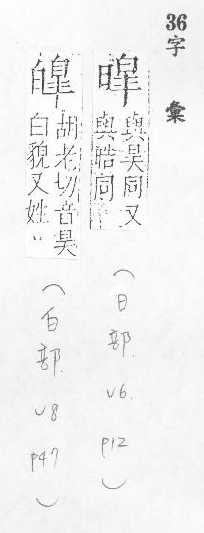 36
字彙
與昊同又
與晧同
（日部. V6. P12）
胡老切音昊
白貌又姓〃
（白部. V8 P47）